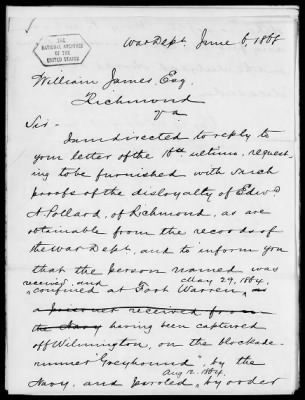 THE
NATIONAL ARCHIVES
OF THE
UNITED STATES
War Dept. June 6, 1868
William James, Esq.
Richmond
Va.
Sir-
I am directed to reply to
your letter of the ultimo, request-
ing to be furnished with such
proofs of the disloyalty of Edwd
A Pollard, of Richmond, as are
obtainable from the records of
the War Dept, and to inform you
that the person named was
received, and May 29, 1864.
"confined at Fort Warren,
a prisoner received from
the Navy having been captured
off Wilmington, on the blockade-
runner "Greyhound", by the
Aug 12, 1864,
Navy, and paroled, by order